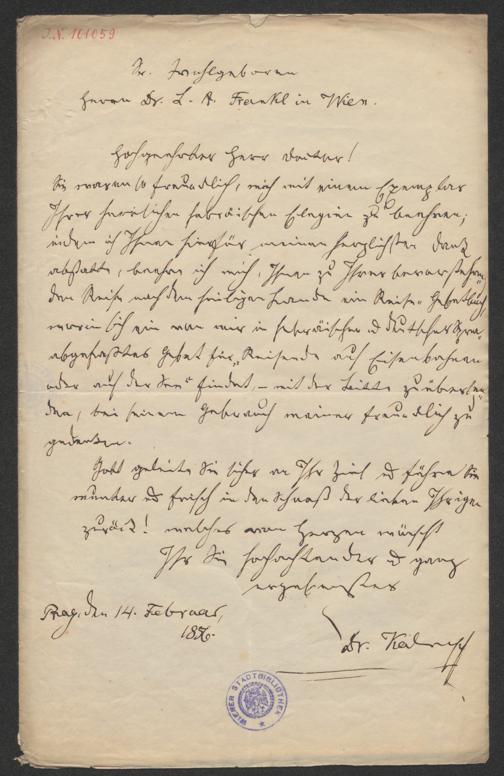 I.N. 101059
Sr. Wohlgeboren
Herrn Dr. L. A. Frankl in Wien.
Hochgeehrter Herr Doctor!
Sie waren so freundlich, mich mit einem Exemplar
Ihrer hebräischen Elegien zu beehren;
indem ich Ihnen hiefür meinen herzlichsten Dank
abstatte, beehre ich mich, Ihnen zu Ihrer bevorstehen-
den Reise nach dem heiligen Lande ein Reise-Gebetbuch,
worin sich ein von mir in hebräischer u deutscher Spra-
abgefaßtes Gebet für „Reisende auf Eisenbahnen
oder auf der See“ findet, – mit der Bitte zu übersen-
den, bei seinem Gebrauch meiner freundlich zu
gedenken.
Gott geleite Sie sicher an Ihr Ziel u führe Sie
munter u frisch in den Schooß der lieben Ihrigen
zurück! welches von Herzen wünscht
Ihr Sie hochachtender u ganz
ergebenster
Prag, den 14. Februar,
1856.
Dr. Kämpf
WIENER STADTBIBLIOTHEK